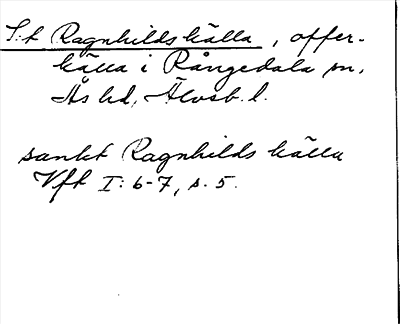 S:t Ragnhilds källa, offer-
källa i Rångedala sn,
Ås hd, Älvsb. l.
sankt Ragnhilds källa
Vft I: 6-7, s. 5.